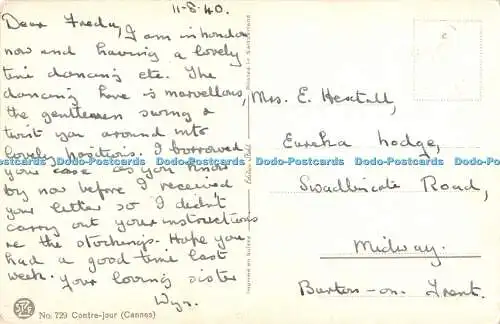 11-8-40.
Dear Freda,
I am in London
now and having a lovely
time dancing etc. The
dancing here is marvellous,
the gentlemen swing &
twist you around into
lovely positions. I borrowed
your case as you know
by now before I received
your letter so I didn't
carry out your instructions
re the stockings. Hope you
had a good time last
week. your loving sister
Wyn.
No. 729 Contre-jour (Cannes)
Printed in Switzerland
Imprimé en Suisse
Mrs. E. Hextall,
Eureka Lodge,
Swadlincote Road,
Midway.
Burton-on-Trent.
Dodo-Postcards Dodo-Postcards Dodo-Postcards Dodo-Postcards Dodo-Postcards